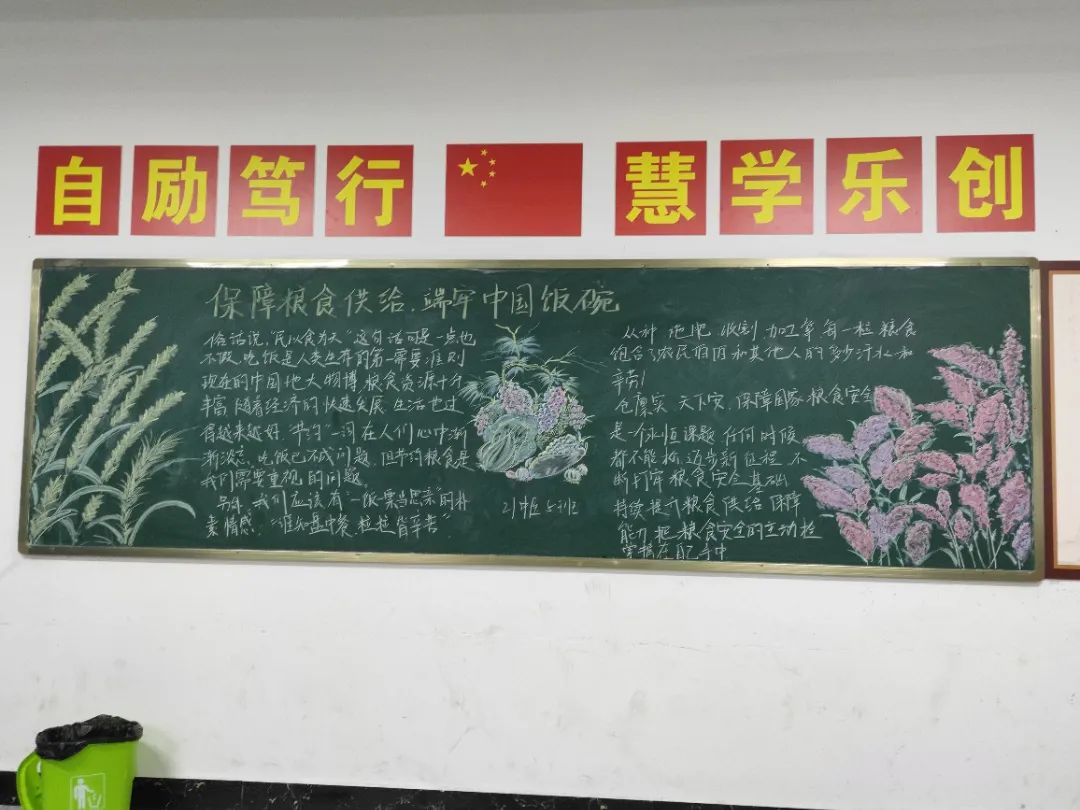 自励笃行
慧学乐创
保障粮食供给,端牢中国饭碗
俗话说,“民以食为天”这句话可是一点也
不假,吃饭是人类生存的第一需要,准则
现在的中国地大物博,粮食资源十分
丰富,随着经济的快速发展,生活也过
得越来越好,“节约”一词在人们心中渐
渐淡忘,吃饭已不成问题,但节约粮食是
我们需要重视的问题
另外,我们应该有“一饭一粟当思来”的朴
素情感,“谁知盘中餐,粒粒皆辛苦”
21中
从种地
加工等,每一粒粮食
饱含了农民伯伯和其他人的多少汗水和
辛劳!
仓廪实,天下安,保障国家粮食安全
是一个永恒课题,任何时候
都不能松,迈步新征程,不
断打牢粮食安全基础
持续提升粮食供给保障
能力,把粮食安全的主动权
掌握在自己手中